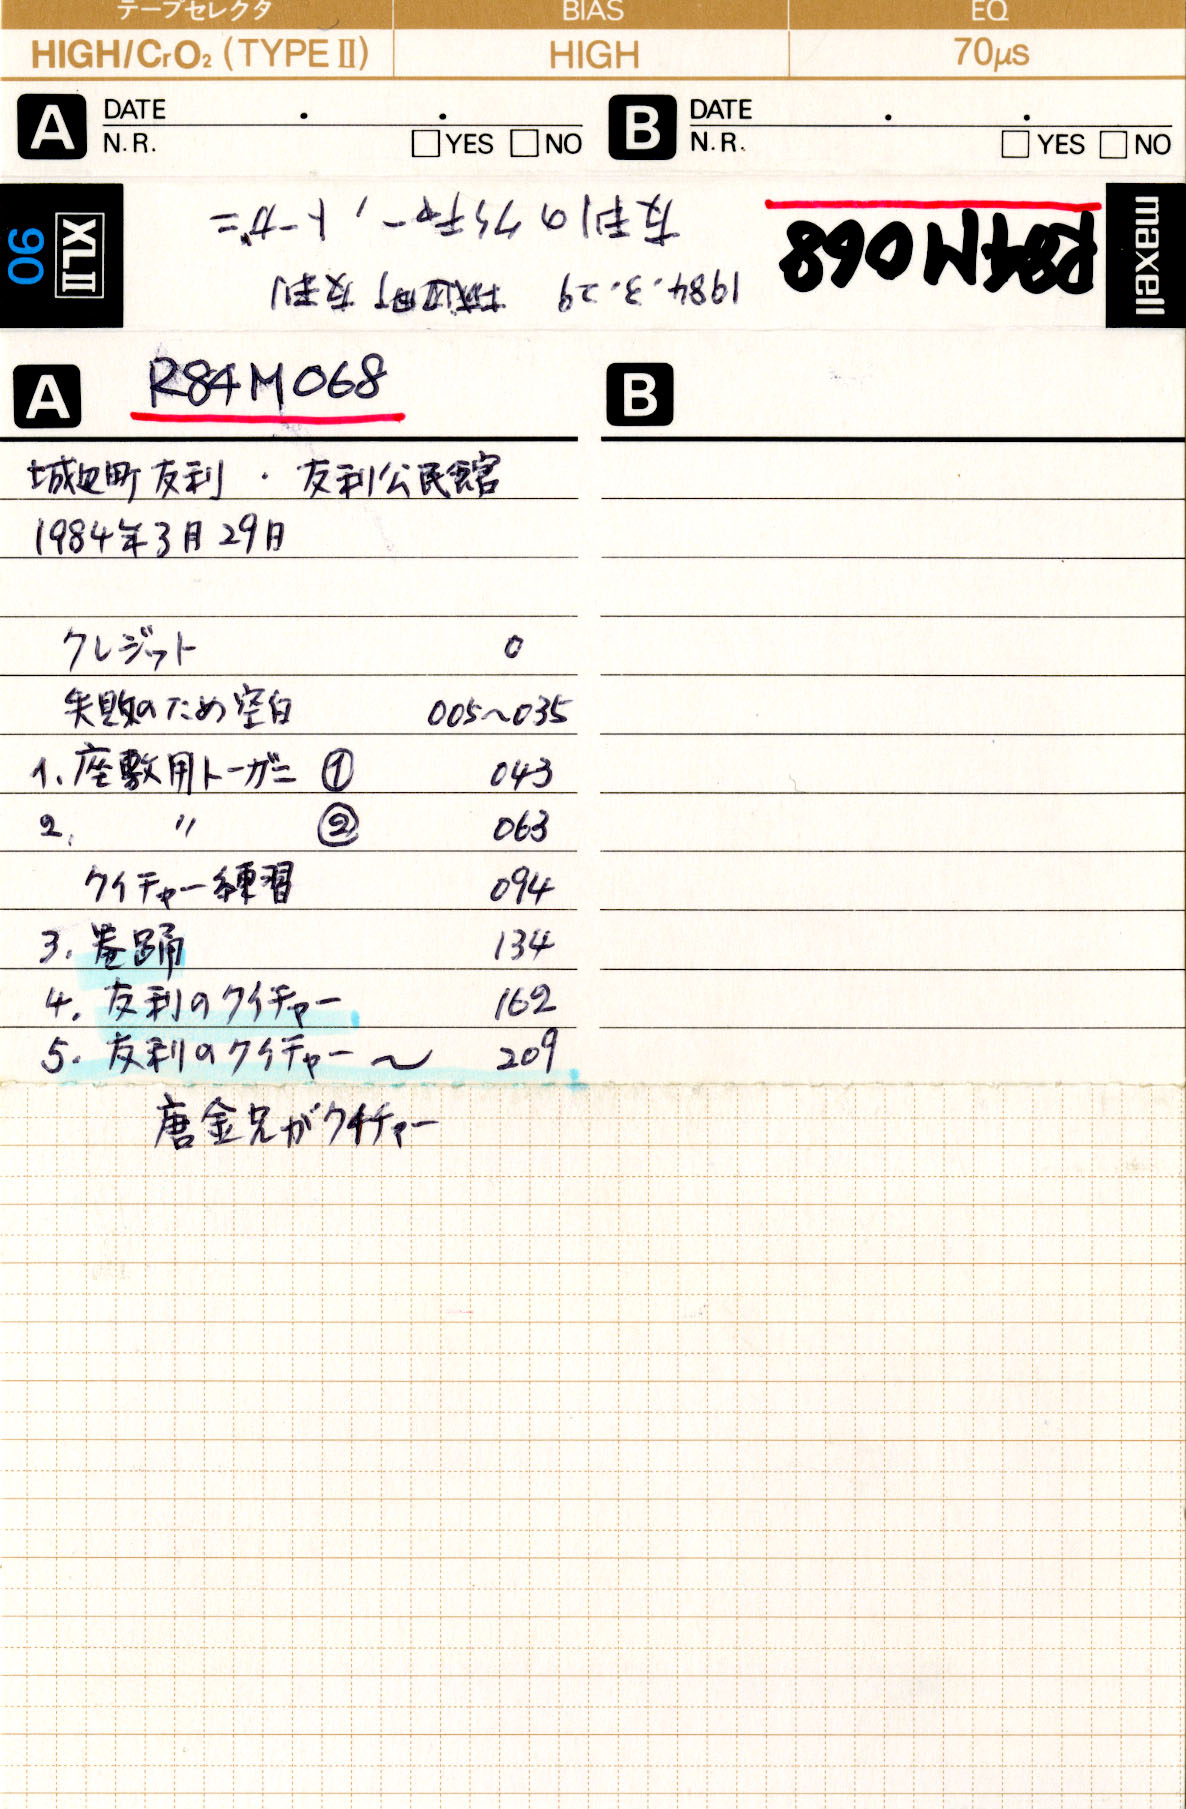 テープセレクタ BIAS EQ
HIGH/CrO₂ (TYPE II) HIGH 70μs
A DATE . . B DATE . .
N.R. □YES □NO N.R. □YES □NO
XLII 90
友利のクイチャー, トーガニ
1984.3.29 城辺町友利
R84M068
maxell
A R84M068 B
城辺町友利・友利公民館
1984年3月29日
クレジット 0
失敗のため空白 005〜035
1. 座敷用トーガニ ① 043
2. 〃 ② 063
クイチャー練習 094
3. 巻踊 134
4. 友利のクイチャー 162
5. 友利のクイチャー〜 209
唐金兄がクイチャー